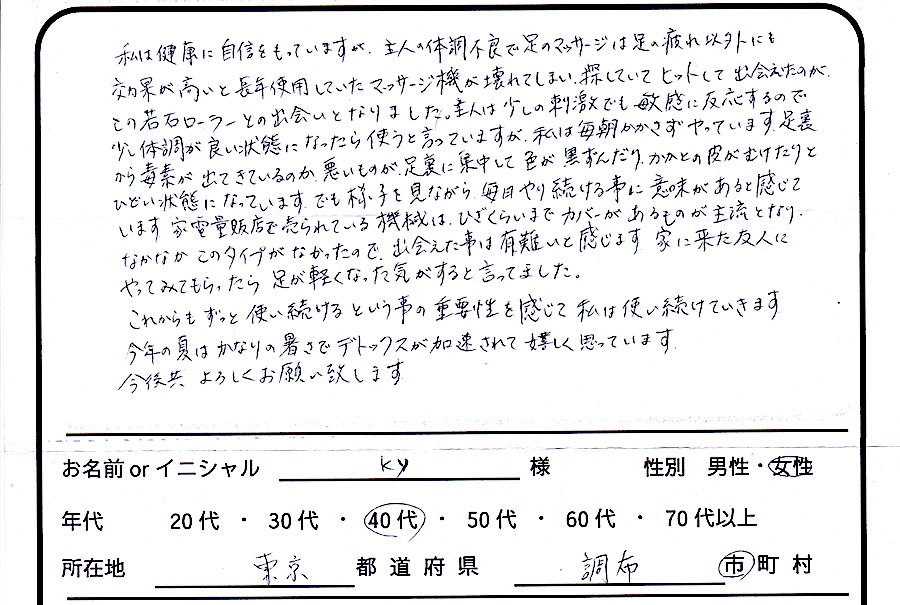 私は健康に自信をもっていますが、主人の体調不良で足のマッサージは足の疲れ以外にも
効果が高いと長年使用していたマッサージ機が壊れてしまい、探していてヒットして出会えたのが、
この若石ローラーとの出会いとなりました。主人は少しの刺激でも敏感に反応するので
少し体調が良い状態になったら使うと言っていますが、私は毎朝かかさずやっています。足裏
から毒素が出てきているのか、悪いものが足裏に集中して色が黒ずんだり、かかとの皮がむけたりと
ひどい状態になっています。でも様子を見ながら、毎日やり続ける事に意味があると感じて
います 家電量販店で売られている機械は、ひざくらいまでカバーがあるものが主流となり、
なかなかこのタイプがなかったので、出会えた事は有難いと感じます 家に来た友人に
やってみてもらったら足が軽くなった気がすると言ってました。
これからもずっと使い続けるという事の重要性を感じて私は使い続けていきます
今年の夏はかなりの暑さでデトックスが加速されて嬉しく思っています。
今後共よろしくお願い致します
お名前 or イニシャル KY 様 性別 男性・女性
年代 20代 ・ 30代 ・ 40代 ・ 50代 ・ 60代 ・ 70代以上
所在地 東京 都道府県 調布 市町村